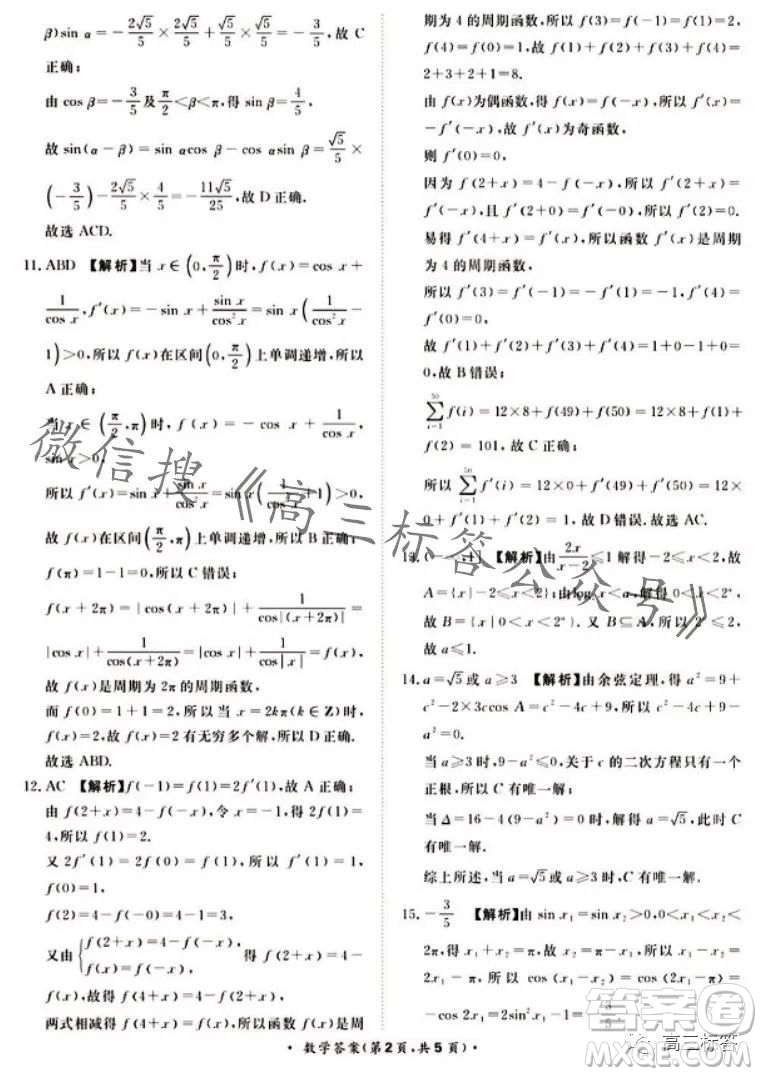 β)sin α=-2√5/5×2√5/5+√5/5×√5/5=-3/5,故 C
正确;
由 cos β=-3/5及π/2<β<π,得 sin β=4/5,
故 sin(α-β)=sin αcos β-cos αsin β=√5/5×
(-3/5)-2√5/5×4/5=-11√5/25,故 D 正确.
故选 ACD.
11. ABD 【解析】当 x∈(0,π/2)时,f(x)=cos x+
1/cos x,f′(x)=-sin x+sin x/cos²x=sin x(1/cos²x-
1)>0,所以 f(x)在区间(0,π/2)上单调递增,所以
A 正确;
当 x∈(π/2,π)时,f(x)=-cos x+1/cos x,
sin x>0,
所以 f′(x)=sin x+sin x/cos²x=sin x(1/cos²x+1)>0,
故 f(x)在区间(π/2,π)上单调递增,所以 B 正确;
f(π)=1-1=0,所以 C 错误;
f(x+2π)=|cos(x+2π)|+1/cos|(x+2π)|=
|cos x|+1/cos(x+2π)=|cos x|+1/cos|x|,
故 f(x)是周期为 2π 的周期函数,
而 f(0)=1+1=2,所以当 x=2kπ(k∈Z)时,
f(x)=2,故 f(x)=2 有无穷多个解,所以 D 正确.
故选 ABD.
12. AC 【解析】f(-1)=f(1)=2f′(1),故 A 正确;
由 f(2+x)=4-f(-x),令 x=-1,得 2f(1)=
4,所以 f(1)=2.
又 2f′(1)=2f(0)=f(1),所以 f′(1)=1,
f(0)=1,
f(2)=4-f(-0)=4-1=3,
又由{f(2+x)=4-f(-x), f(x)=f(-x), 得 f(2+x)=4-
f(x),故得 f(4+x)=4-f(2+x),
两式相减得 f(4+x)=f(x),所以函数 f(x)是周
期为 4 的周期函数,所以 f(3)=f(-1)=f(1)=2,
f(4)=f(0)=1,故 f(1)+f(2)+f(3)+f(4)=
2+3+2+1=8.
由 f(x)为偶函数,得 f(x)=f(-x),所以 f′(x)=
-f′(-x),故 f′(x)为奇函数,
则 f′(0)=0.
因为 f(2+x)=4-f(-x),所以 f′(2+x)=
f′(-x),且 f′(2+0)=f′(-0),所以 f′(2)=0.
易得 f′(4+x)=f′(x),所以函数 f′(x)是周期
为 4 的周期函数,
所以 f′(3)=f′(-1)=-f′(1)=-1,f′(4)=
f′(0)=0,
故 f′(1)+f′(2)+f′(3)+f′(4)=1+0-1+0=0,
故 B 错误;
50∑i=1 f(i)=12×8+f(49)+f(50)=12×8+f(1)+
f(2)=101,故 C 正确;
所以 50∑i=1 f′(i)=12×0+f′(49)+f′(50)=12×0+
f′(1)+f′(2)=1,故 D 错误.故选 AC.
13. 【解析】由2x/(x-2)≤1 解得-2≤x<2,故
A={x|-2≤x<2};由log x<a,解得 0<x<2ᵃ,
故 B={x|0<x<2ᵃ}.又 B⊆A,所以 2ᵃ≤2,
故 a≤1.
14. a=√5或 a≥3 【解析】由余弦定理,得 a²=9+
c²-2×3ccos A=c²-4c+9,所以 c²-4c+9-
a²=0.
当 a≥3时,9-a²≤0,关于 c 的二次方程只有一个
正根,所以 C 有唯一解;
当 Δ=16-4(9-a²)=0 时,解得 a=√5,此时 C
有唯一解.
综上所述,当 a=√5或 a≥3时,C 有唯一解.
15. -3/5 【解析】由 sin x₁=sin x₂>0,0<x₁<x₂<
2π,得 x₁+x₂=π,故 x₂=π-x₁,所以 x₁-x₂=
2x₁-π,所以 cos(x₁-x₂)=cos(2x₁-π)=
-cos 2x₁=2sin²x₁-1=-3/5.
· 数学答案(第 2 页,共 5 页) ·
微信搜《高三标答公众号》
答案卷
高三标答